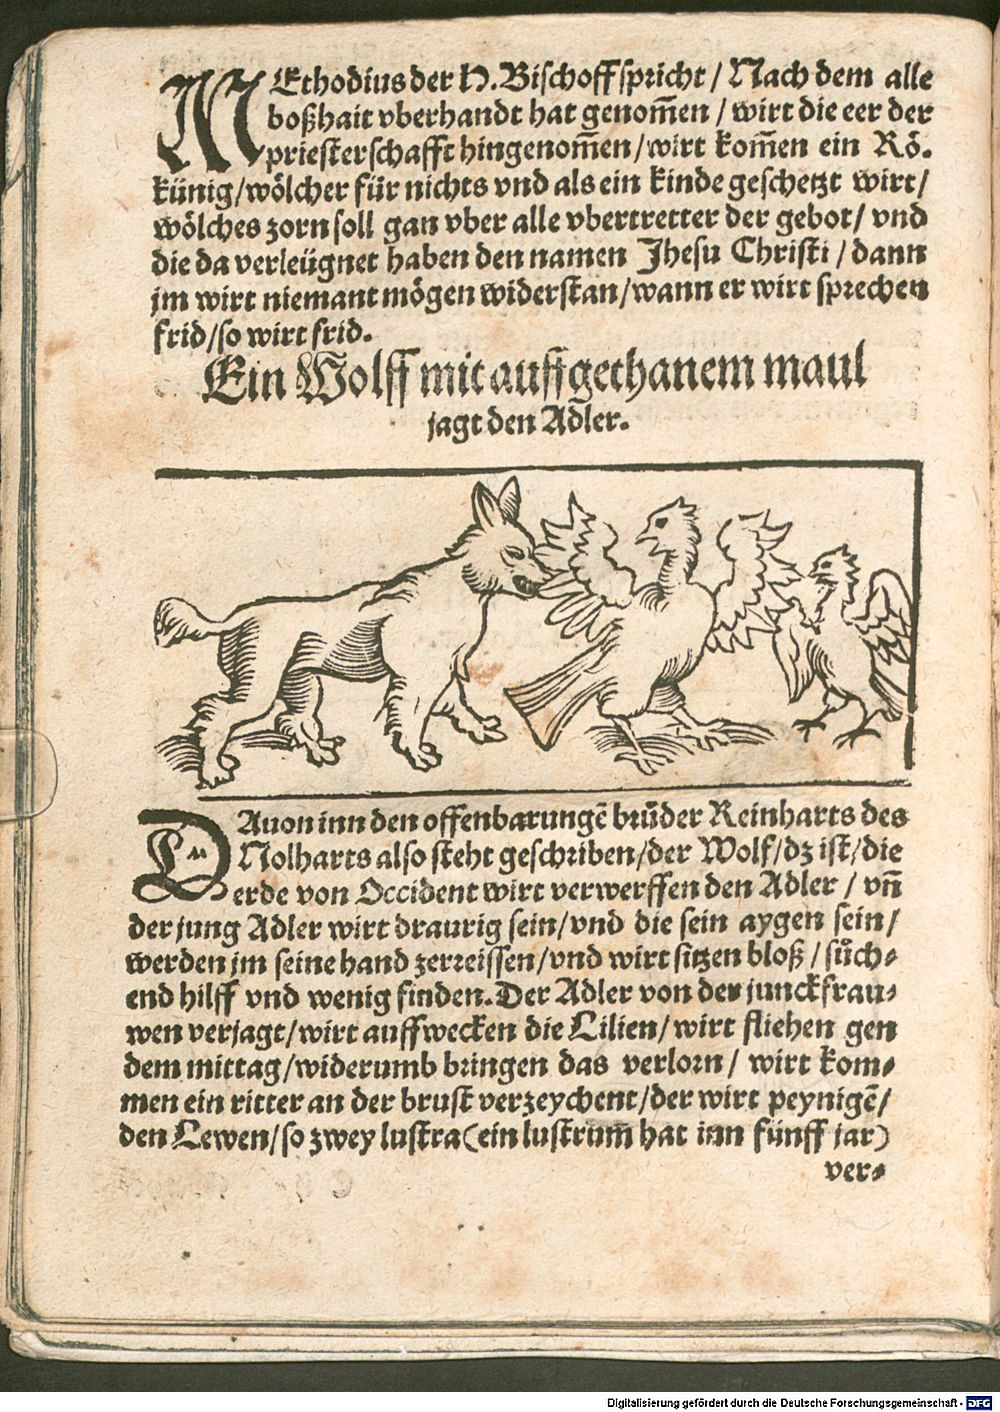 MEthodius der H. Bischoff spricht / Nach dem alle
boßhait vberhandt hat genom̄en / wirt die eer der
priesterschafft hingenom̄en / wirt kom̄en ein Rö.
künig / wölcher für nichts vnd als ein kinde geschetzt wirt /
wölches zorn soll gan vber alle vbertretter der gebot / vnd
die da verleügnet haben den namen Jhesu Christi / dann
jm wirt niemant mögen widerstan / wann er wirt sprechen
frid / so wirt frid.
Ein Wolff mit auffgethanem maul
jagt den Adler.
DAuon inn den offenbarungē brůder Reinharts des
Nolharts also steht geschriben / der Wolf / dz ist / die
erde von Occident wirt verwerffen den Adler / vn̄
der jung Adler wirt draurig sein / vnd die sein aygen sein /
werden jm seine hand zerreissen / vnd wirt sitzen bloß / sůch⸗
end hilff vnd wenig finden. Der Adler von der junckfrau⸗
wen verjagt / wirt auffwecken die Lilien / wirt fliehen gen
dem mittag / widerumb bringen das verlorn / wirt kom⸗
men ein ritter an der brust verzeychent / der wirt peynigē /
den Lewen / so zwey lustra (ein lustrum̄ hat inn fünff jar)
ver⸗
Digitalisierung gefördert durch die Deutsche Forschungsgemeinschaft - DFG